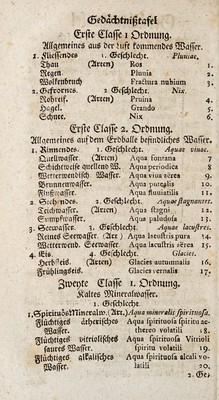 Gedächtnißtafel
Erste Classe 1 Ordnung.
Allgemeines aus der Luft kommendes Wasser.
1. Fliessendes 1. Geschlecht. Pluviae.
Thau (Arten) Ros 1.
Regen Pluvia 2.
Wolkenbruch Fractura nubium 3.
2. Gefrornes. 2 Geschlecht. Nix.
Rohreif. (Arten) Pruina 4.
Hagel. Grando 5.
Schnee. Nix 6.
Erste Classe 2. Ordnung.
Allgemeines auf dem Erdballe befindliches Wasser.
1. Rinnendes. 1. Geschlecht. Aquae vivae.
Quellwasser. (Arten) Aqua fontana 7
Schichtweise quellend W. Aqua periodica 8
Wetterwendisch Wasser Aqua sëres 9
Brunnenwasser Aqua puteals 10
Flußwasser Aqua fluviatilis 11
2. Stehendes 2. Geschlecht. Aquae stagnantes.
Teichwasser. (Arten) Aqua stagni 12.
Sumpfwasser. Aqua paludosa 13.
3. Seewasser. 3. Geschlecht. Aquae lacustres.
Reines Seewasser (Art.) Aqua lacustris pura 14
Wetterwend. Seewasser Aqua lacustris sëres 15.
4. Eis. 4. Geschlecht Glacies.
Herbsteis. (Arten) Glacies autumnalis 16.
Frühlingseis. Glacies vernalis 17.
Zweyte Classe 1. Ordnung.
Kaltes Mineralwasser.
1. Geschlecht.
1. Spirituöses Mineralw. (Art.) Aqua mineralis spirituosa.
Flüchtiges ätherisches Wasser. Aqua spirituosa spiritu aethereo volatili 18.
Flüchtiges vitriolisches saures Wasser. Aqua spirituosa Vitrioli spiritu volatili 19.
Flüchtiges alkalisches Wasser Aqua spirituosa alcali volatili 20.
2. Ge-